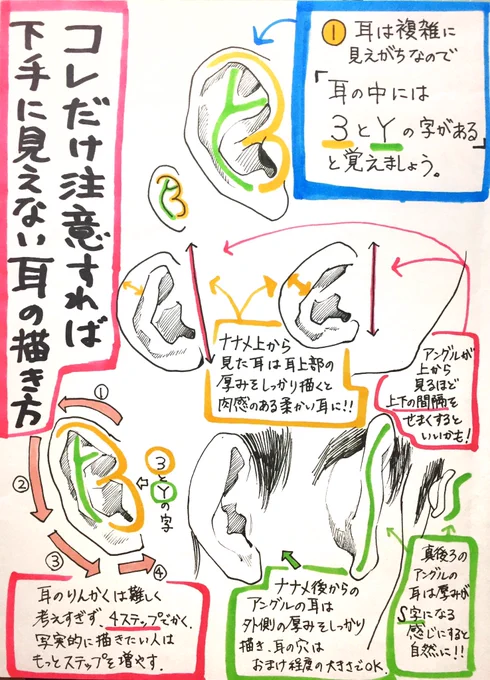 コレだけ注意すれば
下手に見えない耳の描き方
① 耳は複雑に
見えがちなので
「耳の中には
3とYの字がある」
と覚えましょう。
ナナメ上から
見た耳は耳上部の
厚みをしっかり描くと
肉感のある柔かい耳に!!
アングルが
上から
見るほど
上下の間隔を
せまくすると
いいかも!
①
②
③
④
3とYの字
耳のりんかくは難しく
考えすぎず、4ステップでかく。
写実的に描きたい人は
もっとステップを増やす.
ナナメ後からの
アングルの耳は
外側の厚みをしっかり
描き、耳の穴は
おまけ程度の大きさでOK.
真後ろの
アングルの
耳は厚みが
S字になる
感じにすると
自然に!!